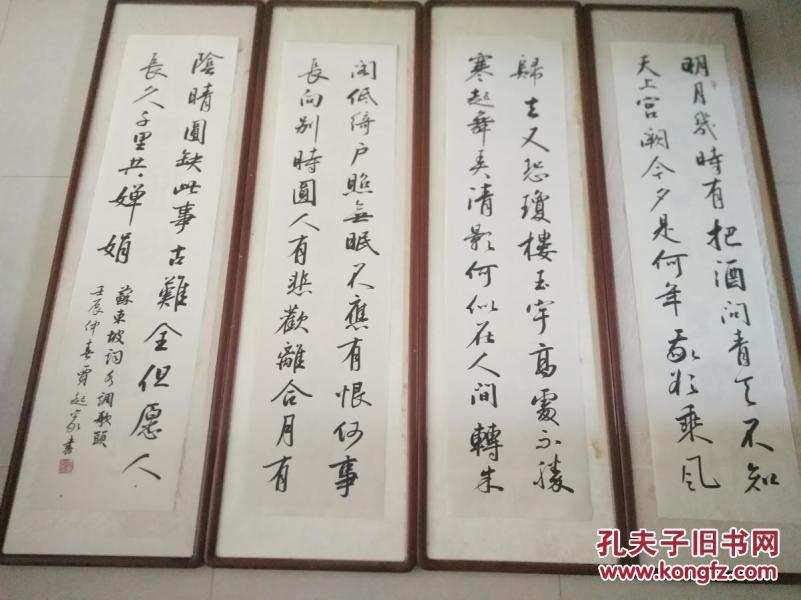 明月幾時有把酒問青天不知
天上宮闕今夕是何年我欲乘風
歸去又恐瓊樓玉宇高處不勝
寒起舞弄清影何似在人間轉朱
阁低綺户照無眠不應有恨何事
長向别時圓人有悲歡離合月有
陰晴圓缺此事古難全但愿人
長久千里共嬋娟
蘇東坡詞水調歌頭
壬辰仲春賈起家書
孔夫子旧书网
www.kongfz.com